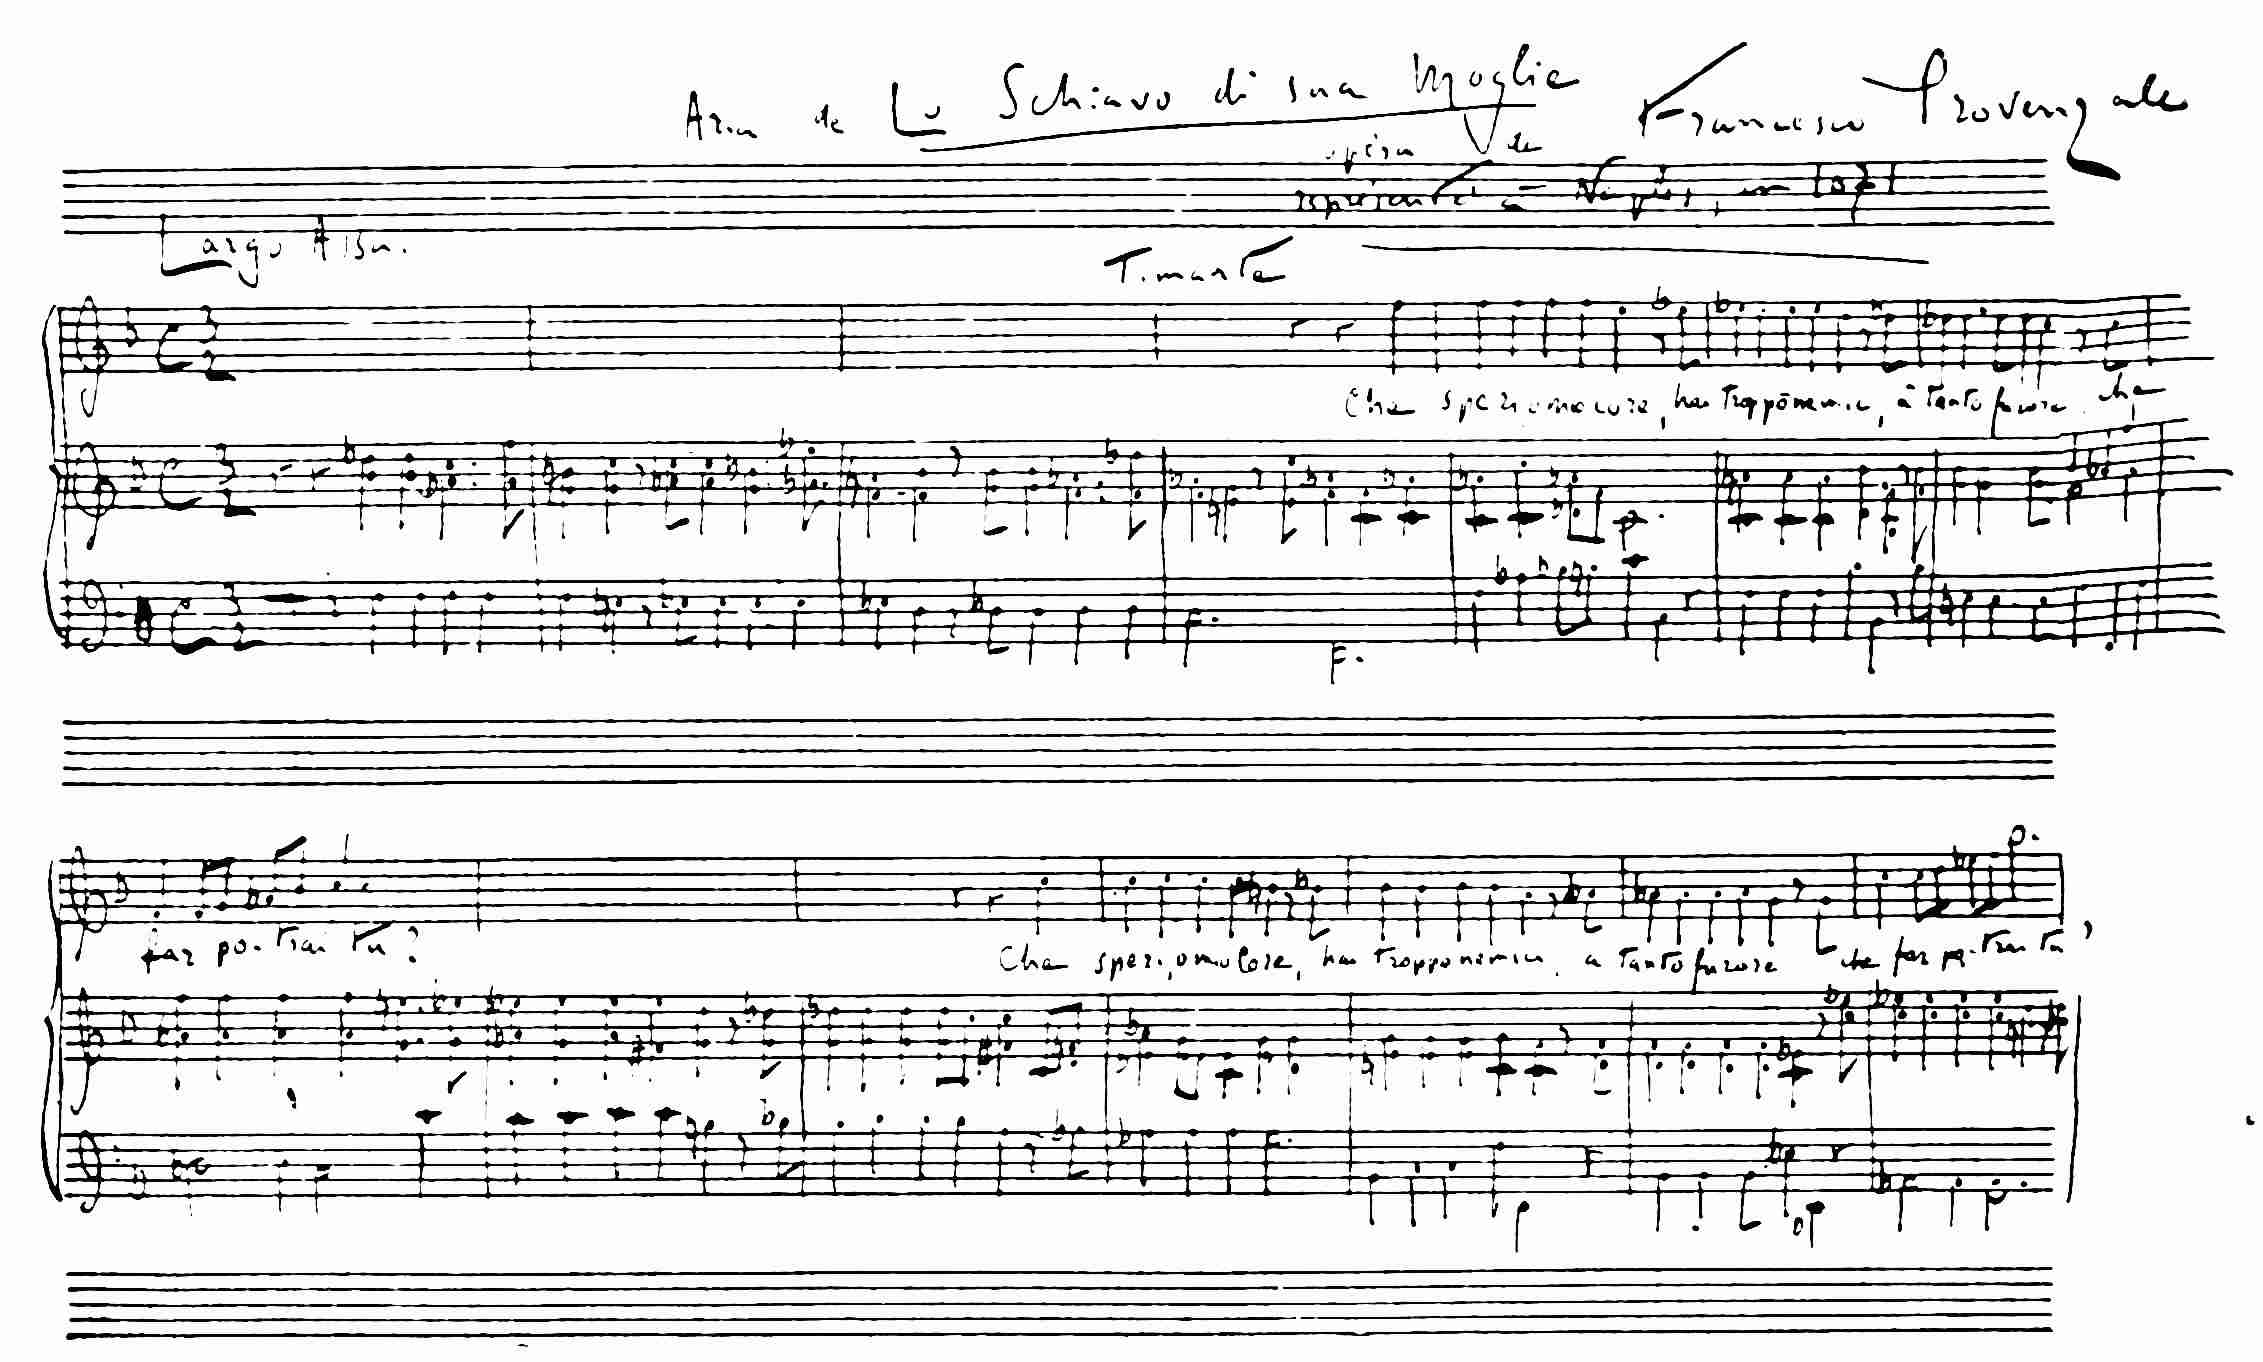 Aria de Lo Schiavo di sua Moglie Francesco Provenzale
opéra de
représenté à Naples, en 1671
Largo Assai.
Timante
Che speri o mio core, hai troppo nemici, a tanto furore che
far po-trai tu?
Che speri, o mio core, hai troppo nemici, a tanto furore che far po-trai tu?